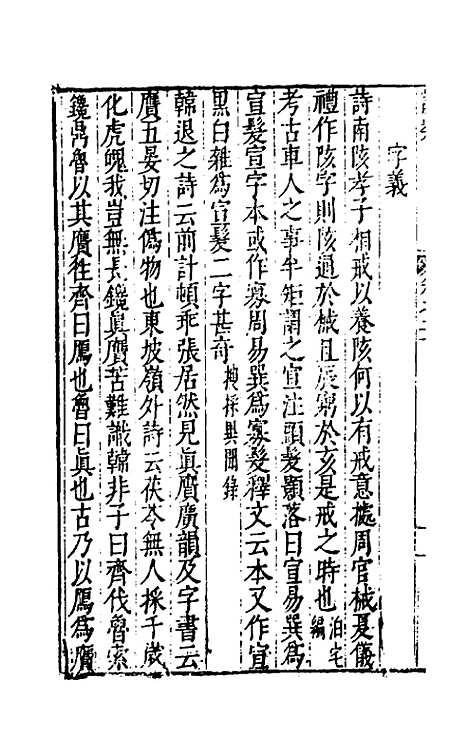 字義
詩南陔孝子相戒以養陔何以有戒意據周官祴夏儀
禮作陔字則陔通於祴且辰窮於亥是戒之時也泊宅編
考古車人之事半矩謂之宣注頭髮顥落曰宣易巽爲
宣髮宣字本或作寡周易巽爲寡髮釋文云本又作宣
黑白雜爲宣髮二字甚奇搜採異聞錄
韓退之詩云前計頓乖張居然見眞贗廣韻及字書云
贗五晏切注僞物也東坡嶺外詩云茯苓無人採千歲
化虎魄我豈無長鑱眞贗苦難識韓非子曰齊伐魯索
鑱鼎魯以其贗往齊曰鴈也魯曰眞也古乃以鴈爲贗